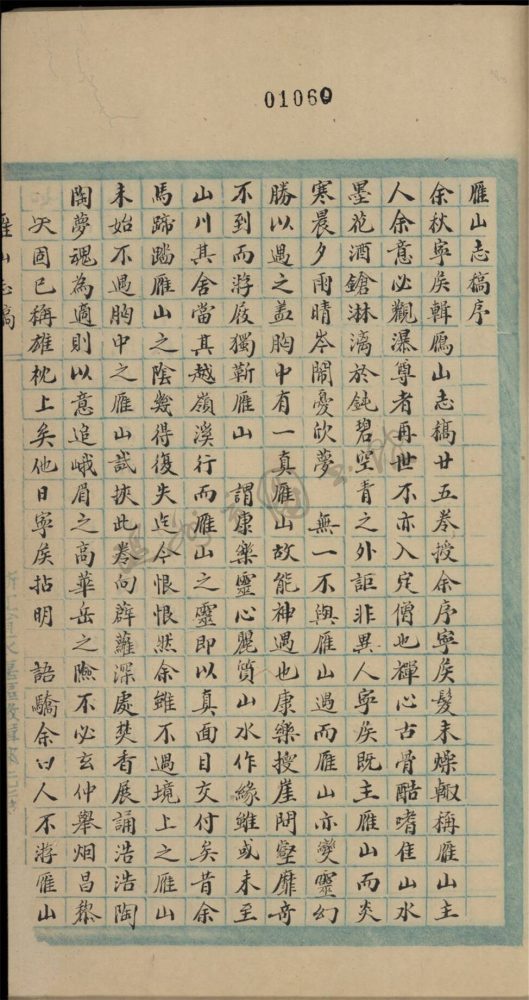 01060
雁山志稿序
余秋寧矦輯鴈山志稿廿五卷授余序寧矦髮未燥輙稱雁山主
人余意必觀瀑尊者再世不亦入定僧也禪心古骨酷嗜佳山水
墨花酒鎗淋漓於鈍碧空青之外詎非異人寧矦既主雁山而炎
寒晨夕雨晴岑鬧憂欣夢 無一不與雁山遇而雁山亦變靈幻
勝以遇之蓋胸中有一真雁山故能神遇也康樂搜崖問壑靡奇
不到而游屐獨靳雁山 謂康樂靈心麗質山水作緣雖或未至
山川其舍當其越嶺溪行而雁山之靈即以真面目交付矣昔余
馬蹄踏雁山之陰幾得復失迄今恨恨然余雖不遇境上之雁山
未始不遇胸中之雁山試挾此卷向薜蘿深處焚香展誦浩浩陶
陶夢魂為適則以意追峨眉之高華岳之險不必玄仲舉烟昌黎
天固已稱雄枕上矣他日寧矦拈明 語驕余曰人不游雁山
雁山志稿